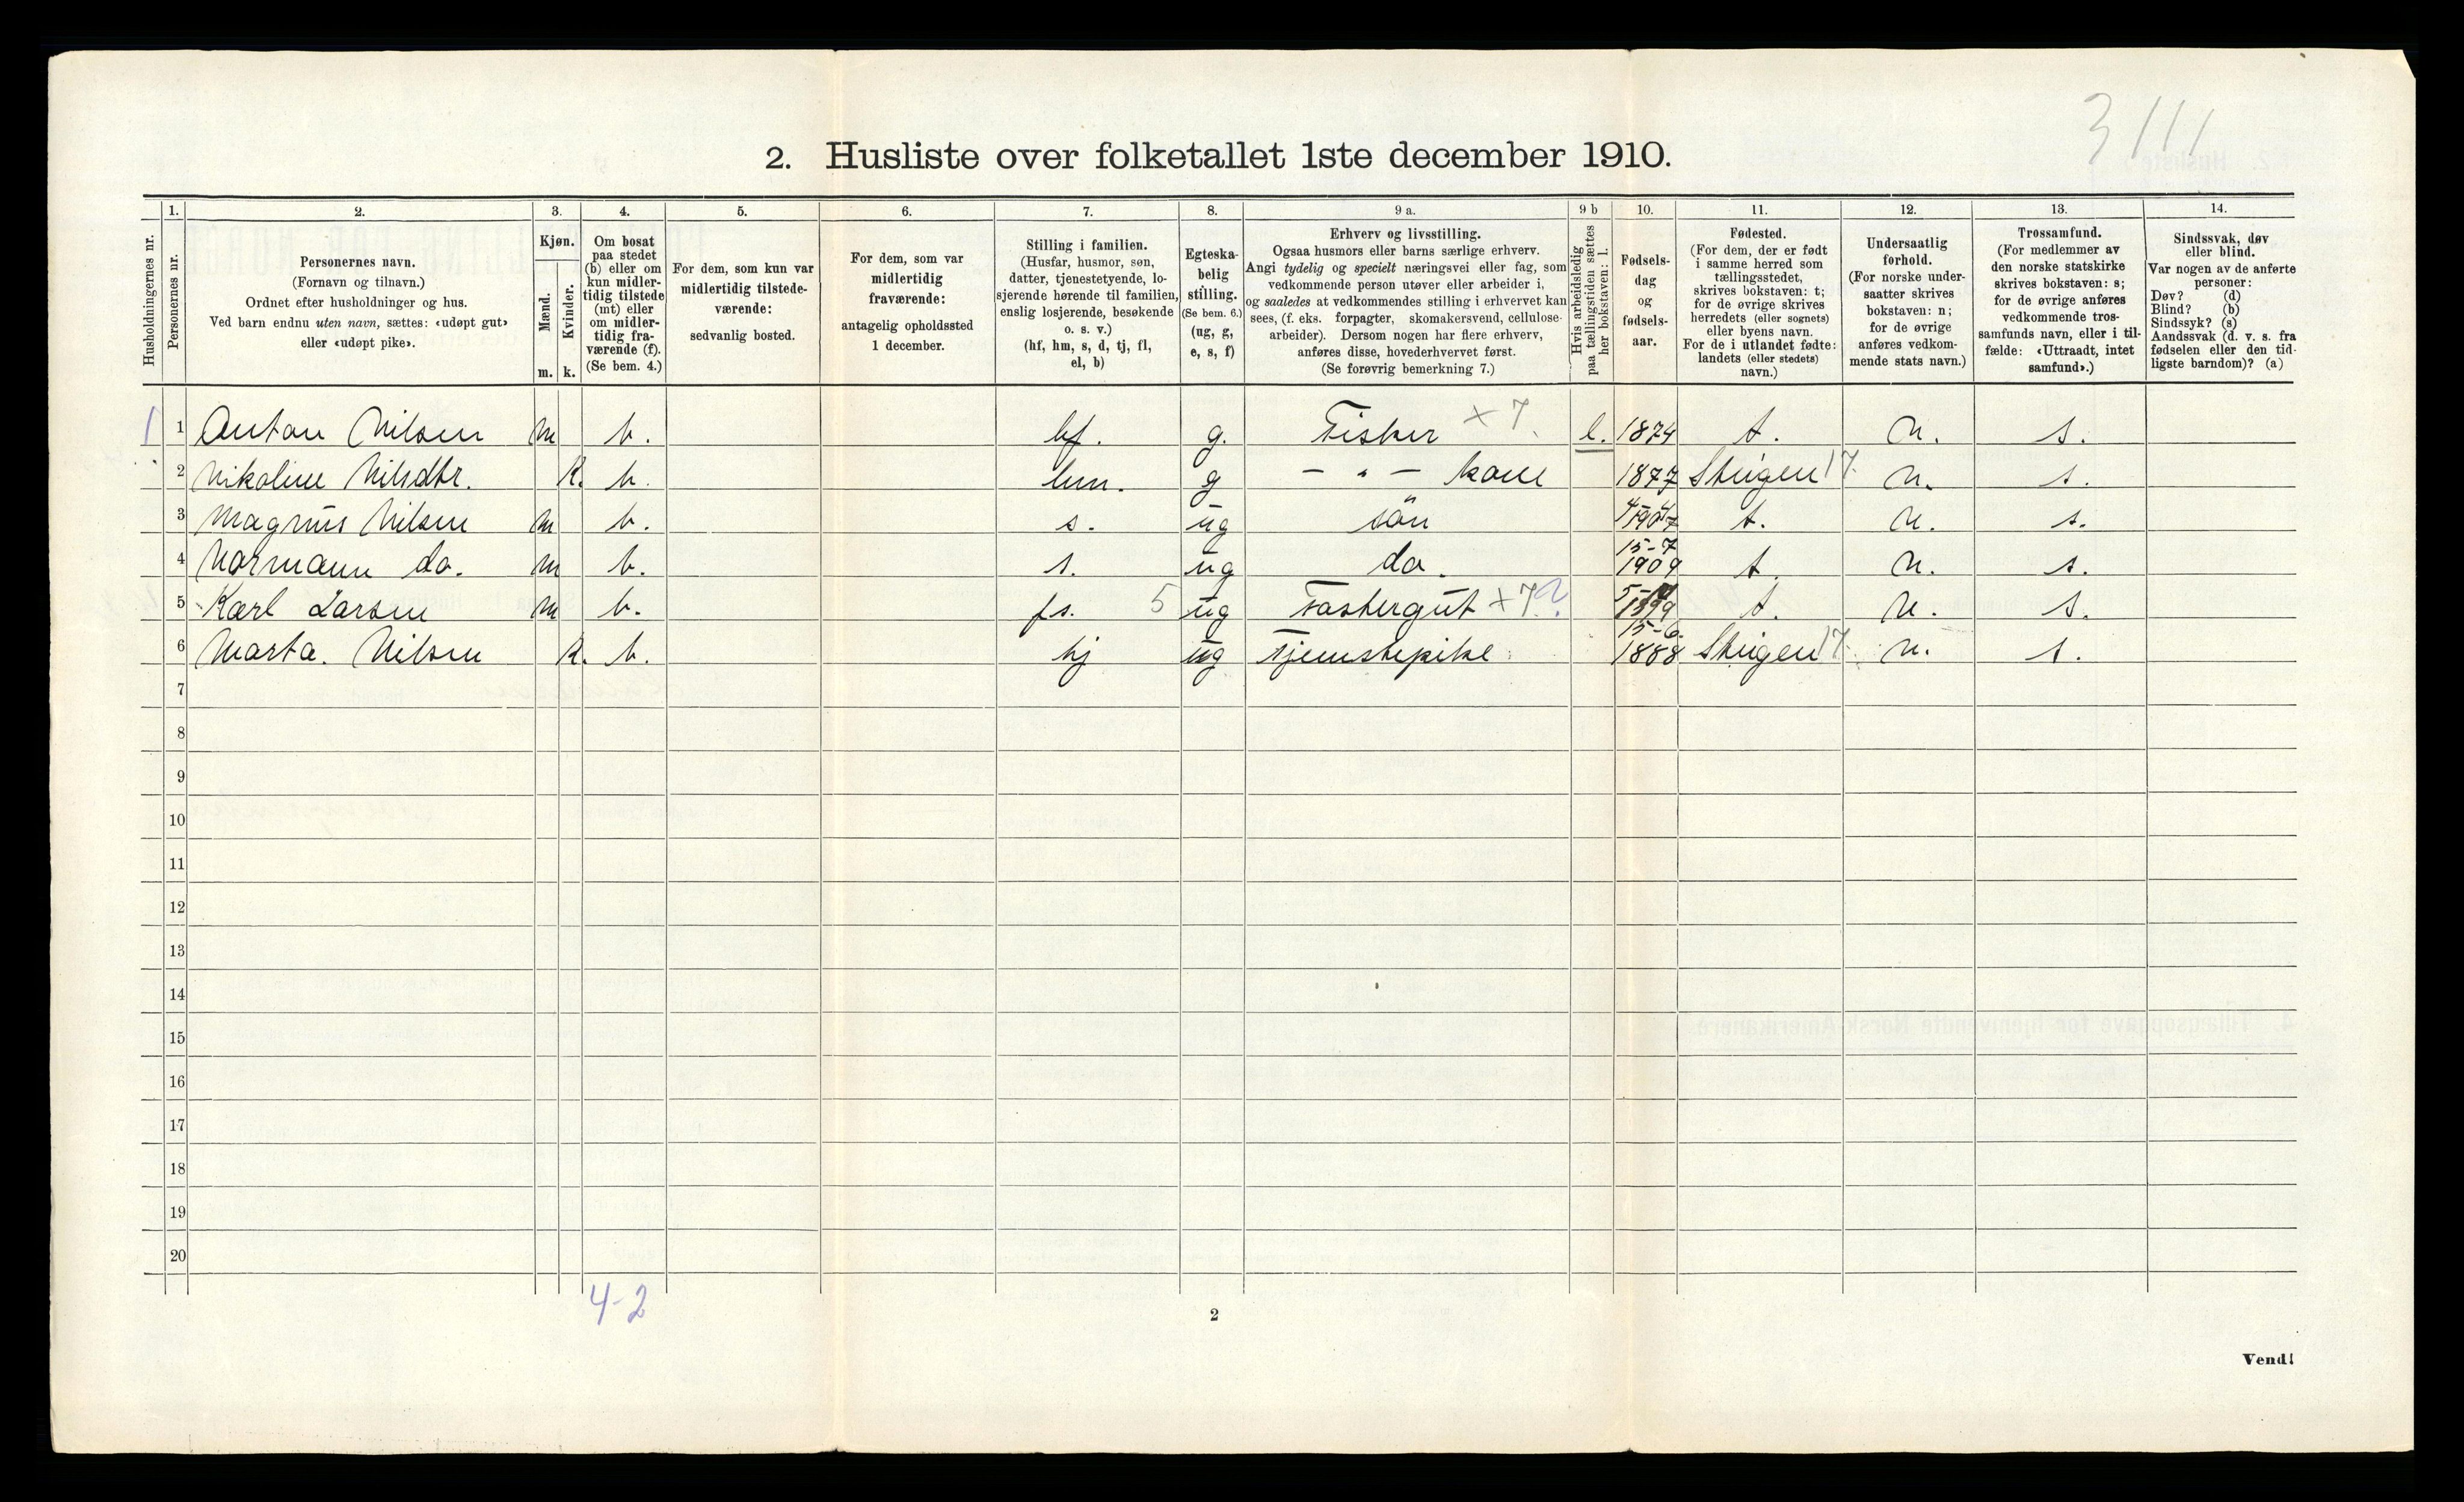 3111
2. Husliste over folketallet 1ste december 1910.
Husholdningernes nr.
1. Personernes nr.
2. Personernes navn.
(Fornavn og tilnavn.)
Ordnet efter husholdninger og hus.
Ved barn endnu uten navn, sættes: «udøpt gut»
eller «udøpt pike».
3. Kjøn.
Mænd. m.
Kvinder. k.
4. Om bosat
paa stedet
(b) eller om
kun midler-
tidig tilstede
(mt) eller
om midler-
tidig fra-
værende (f).
(Se bem. 4.)
5. For dem, som kun var
midlertidig tilstede-
værende:
sedvanlig bosted.
6. For dem, som var
midlertidig
fraværende:
antagelig opholdssted
1 december.
7. Stilling i familien.
(Husfar, husmor, søn,
datter, tjenestetyende, lo-
sjerende hørende til familien,
enslig losjerende, besøkende
o. s. v.)
(hf, hm, s, d, tj, fl,
el, b)
8. Egteska-
belig
stilling.
(Se bem. 6.)
(ug, g,
e, s, f)
9 a. Erhverv og livsstilling.
Ogsaa husmors eller barns særlige erhverv.
Angi tydelig og specielt næringsvei eller fag, som
vedkommende person utøver eller arbeider i,
og saaledes at vedkommendes stilling i erhvervet kan
sees, (f. eks. forpagter, skomakersvend, cellulose-
arbeider). Dersom nogen har flere erhverv,
anføres disse, hovederhvervet først.
(Se forøvrig bemerkning 7.)
9 b Hvis arbeidsledig
paa tællingstiden sættes
her bokstaven: l.
10. Fødsels-
dag
og
fødsels-
aar.
11. Fødested.
(For dem, der er født
i samme herred som
tællingsstedet,
skrives bokstaven: t;
for de øvrige skrives
herredets (eller sognets)
eller byens navn.
For de i utlandet fødte:
landets (eller stedets)
navn.)
12. Undersaatlig
forhold.
(For norske under-
saatter skrives
bokstaven: n;
for de øvrige
anføres vedkom-
mende stats navn.)
13. Trossamfund.
(For medlemmer av
den norske statskirke
skrives bokstaven: s;
for de øvrige anføres
vedkommende tros-
samfunds navn, eller i til-
fælde: «Uttraadt, intet
samfund».)
14. Sindssvak, døv
eller blind.
Var nogen av de anførte
personer:
Døv? (d)
Blind? (b)
Sindssyk? (s)
Aandssvak (d. v. s. fra
fødselen eller den tid-
ligste barndom)? (a)
1 1 Anton Nilsen m b. hf. g. Fisker x 7. l. 1874 t. n. s.
2 Nikoline Nilsdtr. K. b. hm. g — " — kone 1877 Steigen 17. n. s.
3 Magnus Nilsen m b. s. ug sön t. n. s.
4 Normann do. m b. s. ug do. 15-7 1909 t. n. s.
5 Karl Larsen m b. fs. 5 ug Fostergut x 7. ? t. n. s.
6 Marta. Nilsen K. b. tj ug Tjenestepike 15-6. 1888 Steigen 17. n. s.
7
8
9
10
11
12
13
14
15
16
17
18
19
20
4-2
2
Vend!